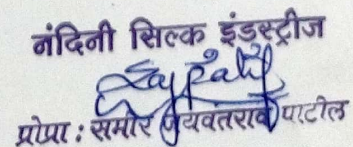 नंदिनी सिल्क इंडस्ट्रीज
प्रोप्रा : समीर जयवंतराव पाटील